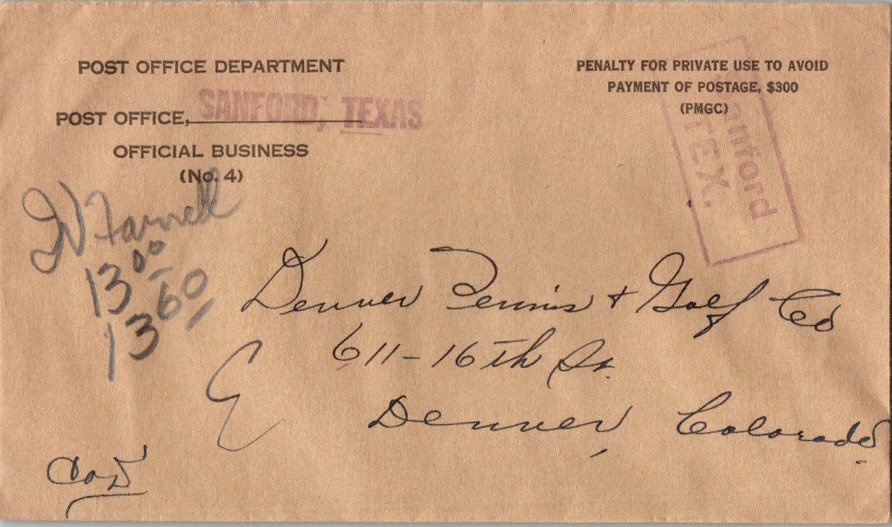 POST OFFICE DEPARTMENT
POST OFFICE, SANFORD, TEXAS
OFFICIAL BUSINESS
(No. 4)
PENALTY FOR PRIVATE USE TO AVOID
PAYMENT OF POSTAGE, $300
(PMGC)
Sanford
TEX.
Farnell
13 00
13 60
Denver Tennis & Golf Co
611-16th St.
Denver, Colorado.
COD